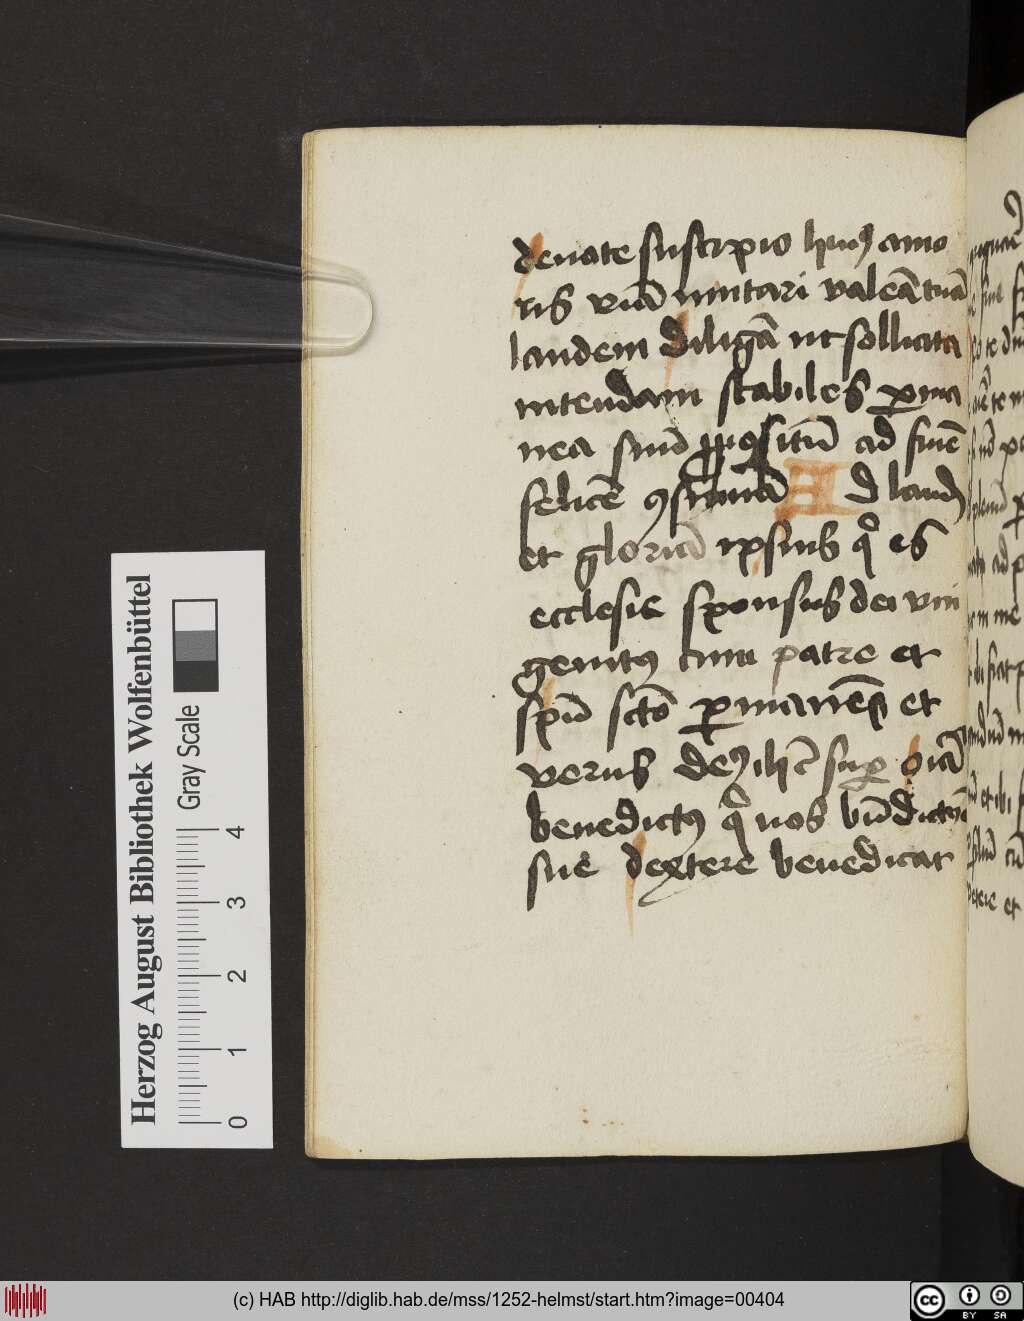 denate suscipio huiꝰ amo
ris viā imitari valeā tuā
laudem diligā ut sollicita
intendam stabiles ꝑma
nea suū ꝓpositū ad finē
felicē ꝯsumā Ad laudē
et gloriā ipsius qͦ es
ecclesie sponsus dei vni
genitꝰ cum patre et
spū scto ꝑmanēs et
verus deꝰ ihc̄ suꝑ oīa
benedictꝰ qͥ nos bn̄dictōe
sue dextere benedicat
Herzog August Bibliothek Wolfenbüttel
Gray Scale
0 1 2 3 4
(c) HAB http://diglib.hab.de/mss/1252-helmst/start.htm?image=00404
cc BY SA